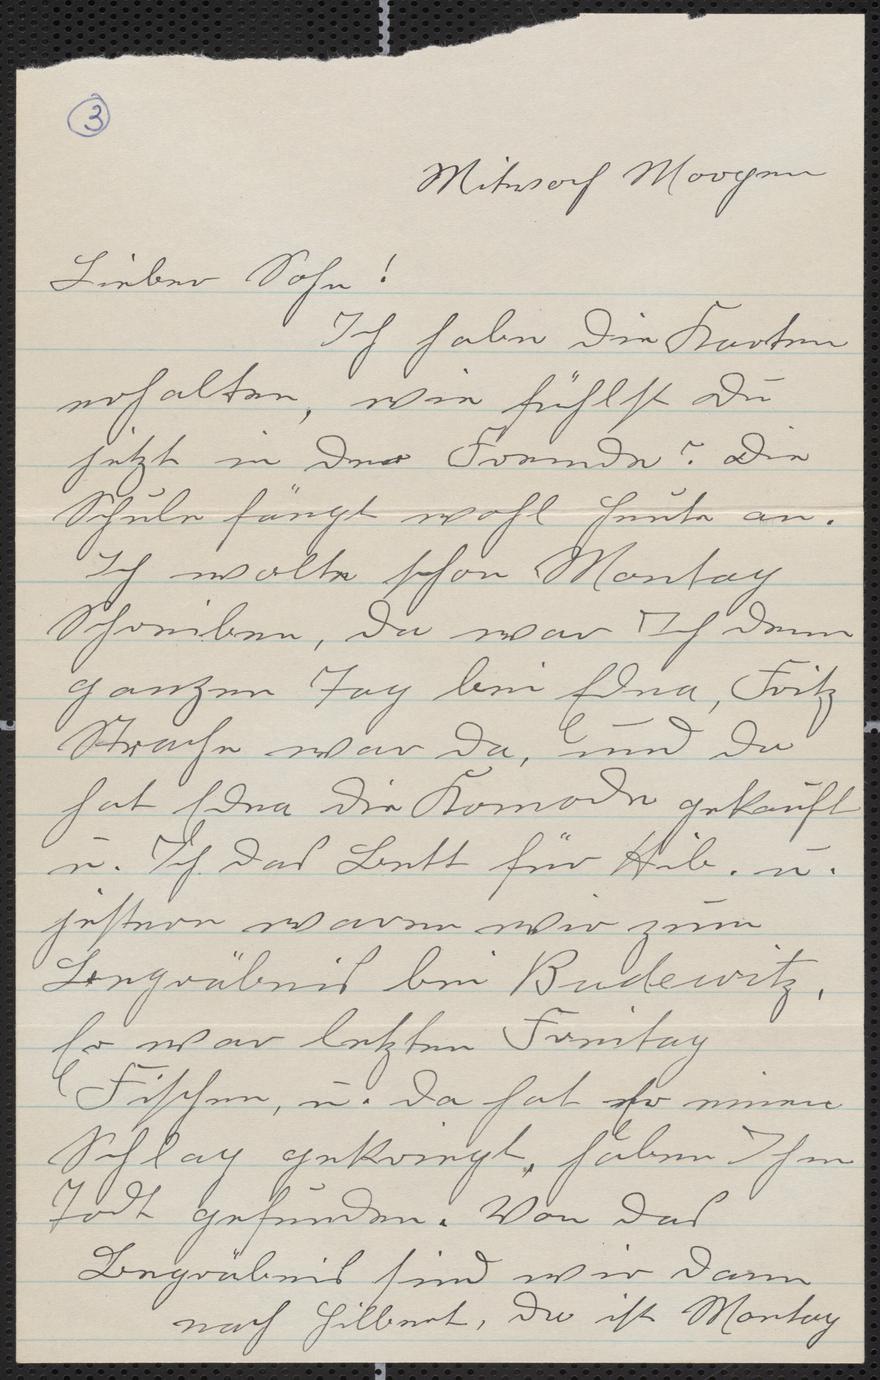 3
Mitwoch Morgen
Lieber Sohn!
Ich habe die Karten
erhalten, wie fühlst du
jetzt in der Fremde? Die
Schule fängt wohl heute an.
Ich wollte schon Montag
Schreiben, da war Ich denn
ganzen Tag bei Edna, Fritz
Strache war da, und da
hat Edna die Komode gekauft
u. Ich das Bett für Hib. u.
jestern waren wir zum
Begräbnis bei Budewitz,
Er war letzten Freitag
Fischen, u. da hat er einen
Schlag gekriegt, haben Ihn
Todt gefunden. Von das
Begräbnis sind wir dann
nach Hilbert, da ist Montag